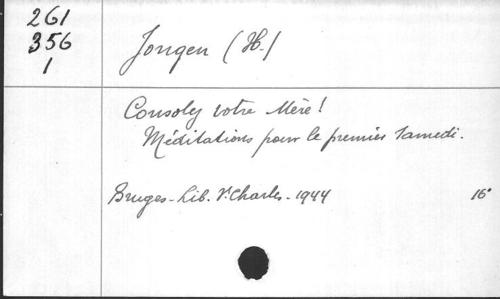 261
356
1
Jongen (H.)
Consolez votre Mère!
Méditations pour le premier Samedi.
Bruges - Lib. St Charles - 1944 16°